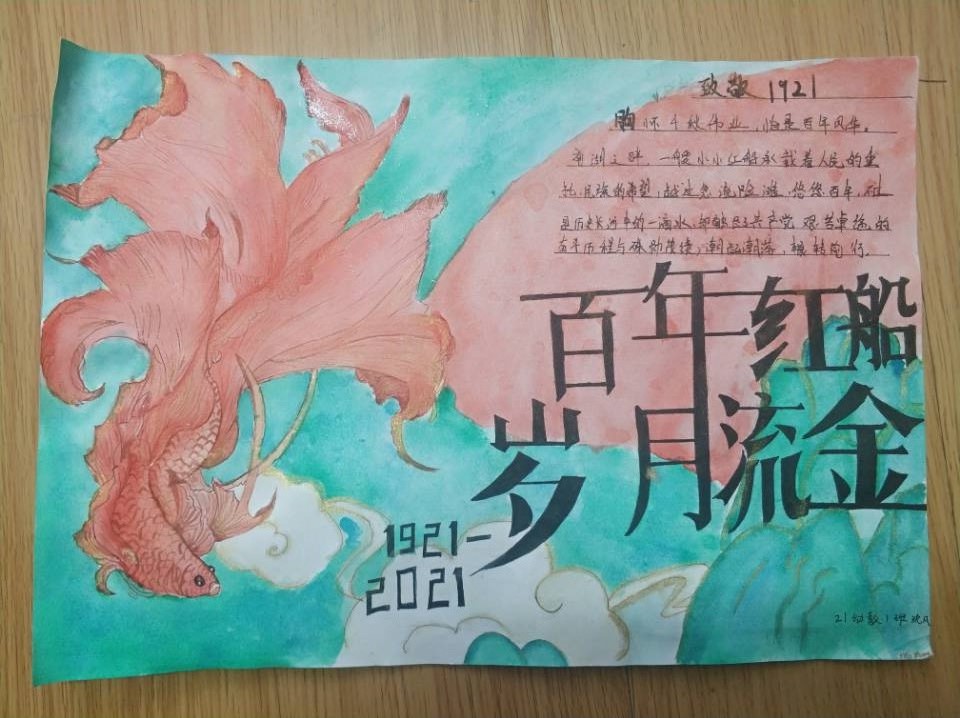 致敬 1921
胸怀千秋伟业,恰是百年风华。
南湖之畔,一艘小小红船承载着人民的重
托、民族的希望,越过急流险滩,悠悠百年,
是历史长河中的一滴水,却 共产党 艰苦卓绝的
百年历程与 潮起潮落,
百年红船
岁月流金
1921-
2021
21幼教1班